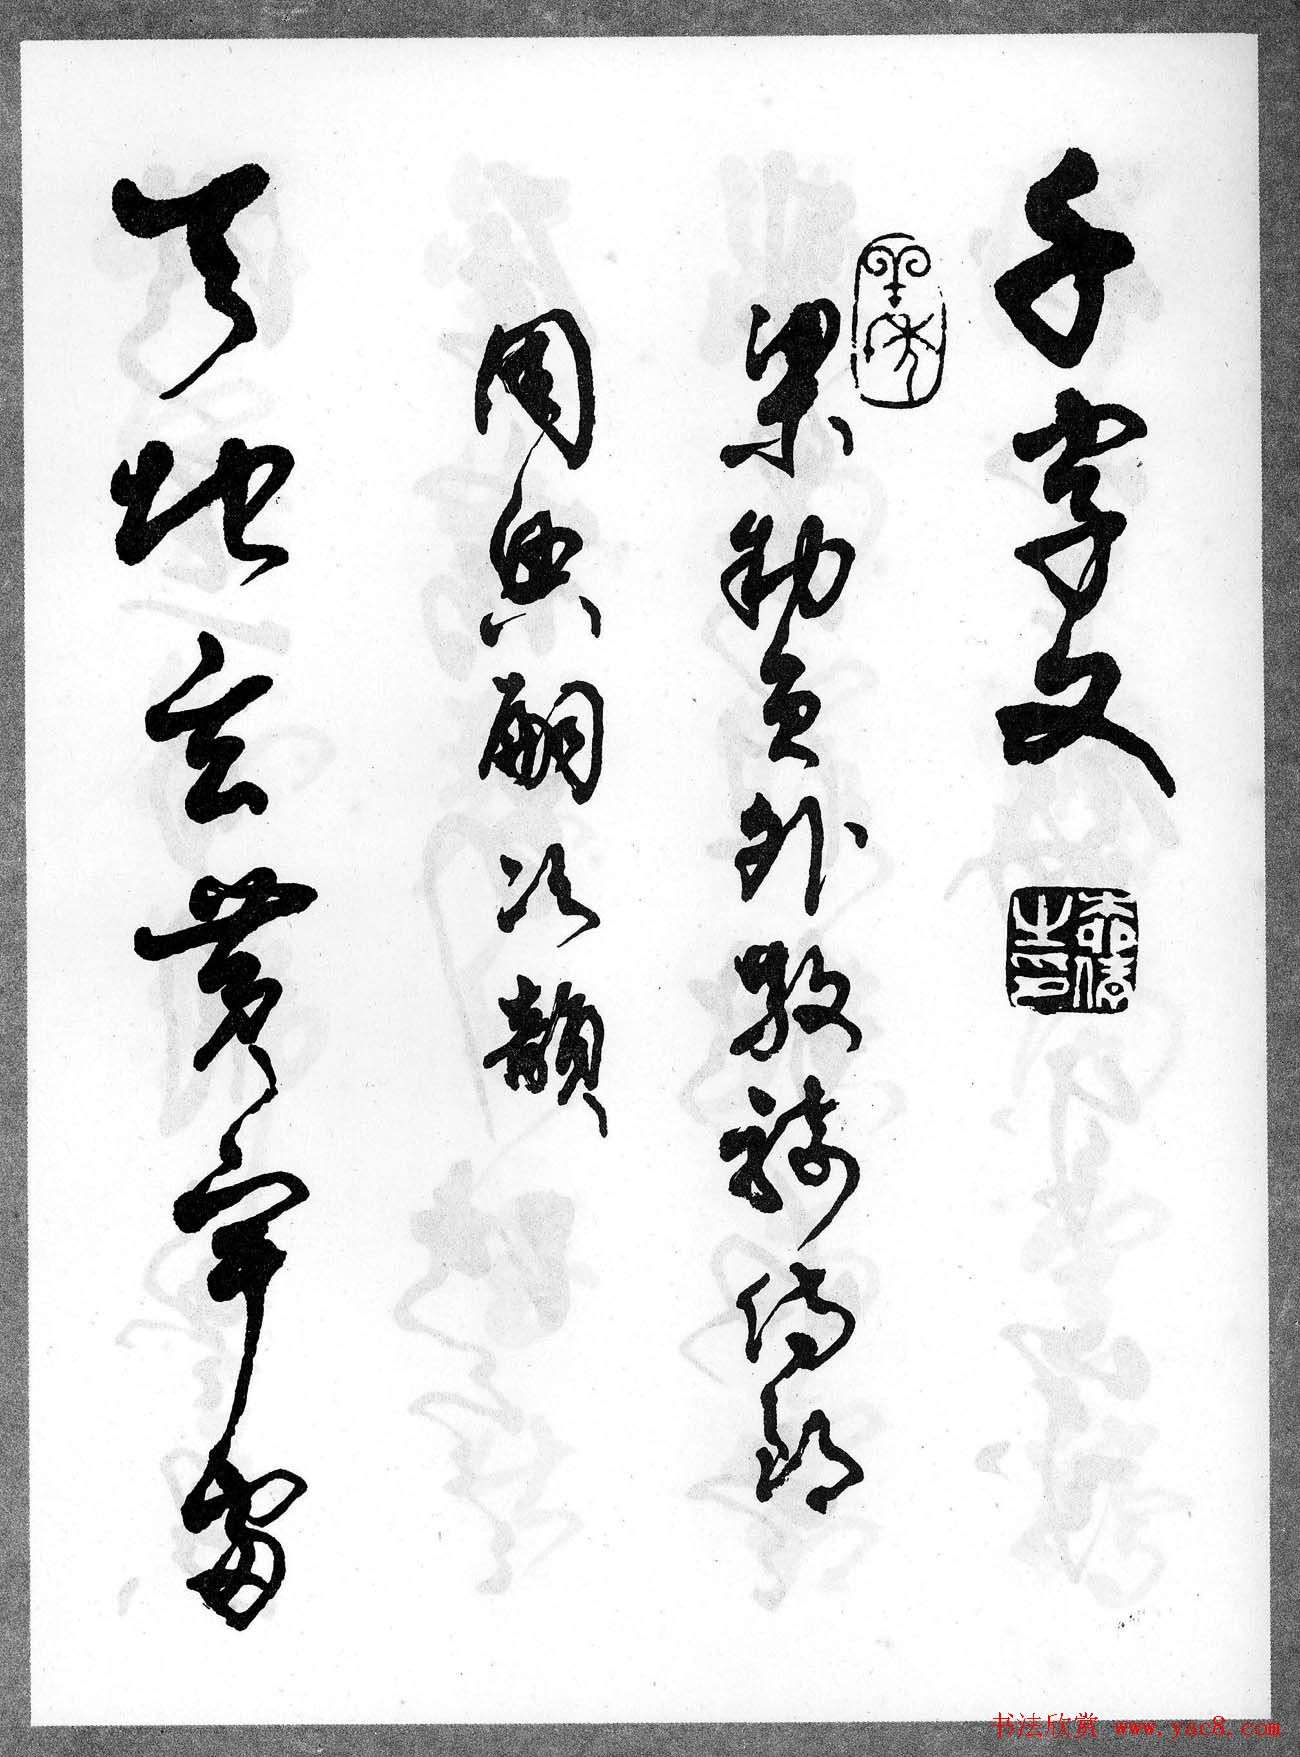 千字文
梁勑員外散騎侍郎
周興嗣次韻
天地玄黃宇宙
书法欣赏 www.yac8.com